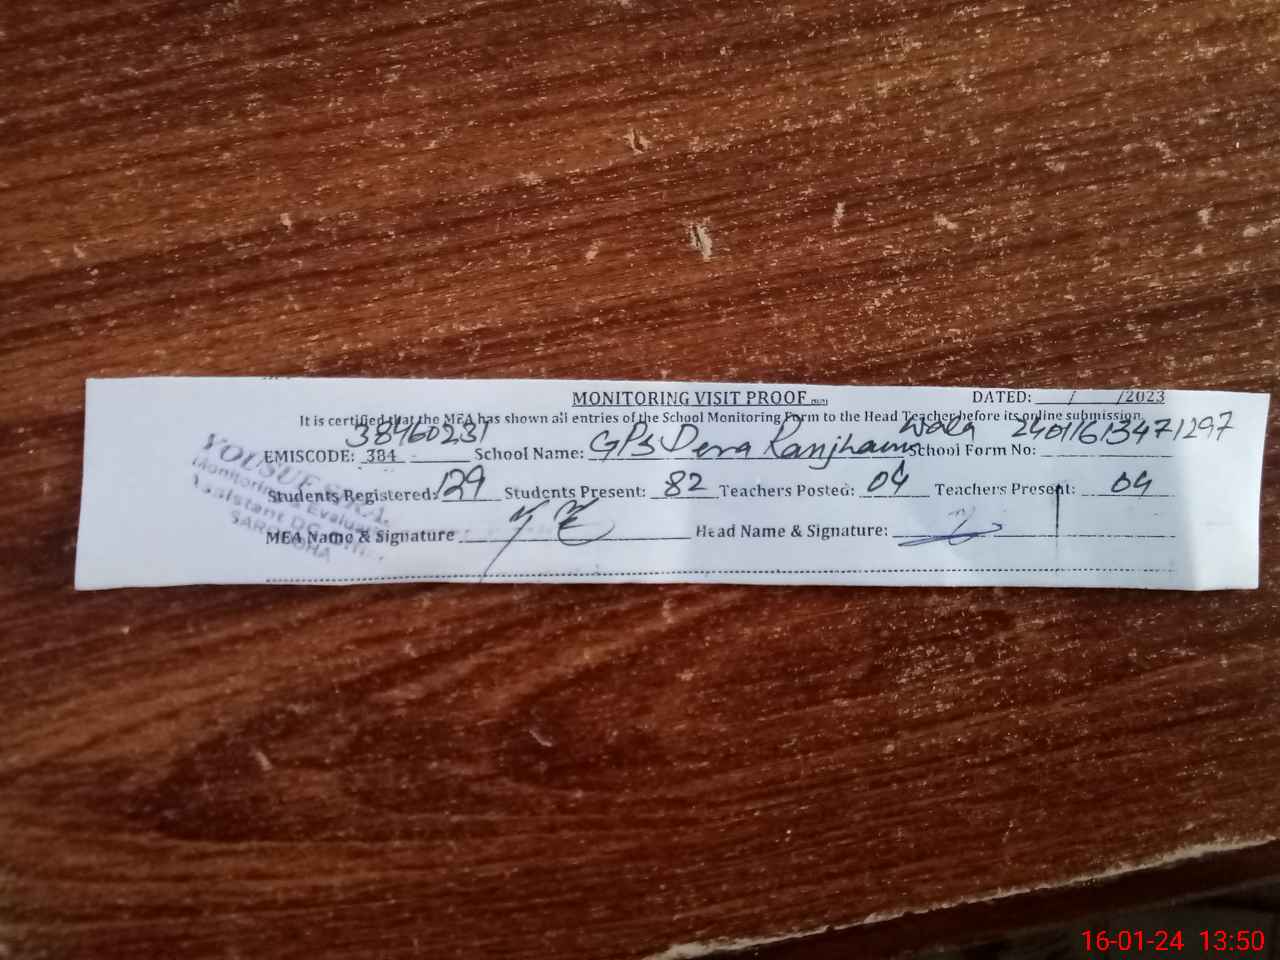 MONITORING VISIT PROOF
DATED: ___/___/2023
It is certified that the MEA has shown all entries of the School Monitoring Form to the Head Teacher before its online submission.
EMISCODE: 384 38460231 School Name: GPS Dera Ranjhawala School Form No: 2401161347 1297
Students Registered: 129 Students Present: 82 Teachers Posted: 04 Teachers Present: 04
MEA Name & Signature Head Name & Signature:
YOUSUF
Monitoring & Evaluation
Assistant
SARGODHA
16-01-24 13:50